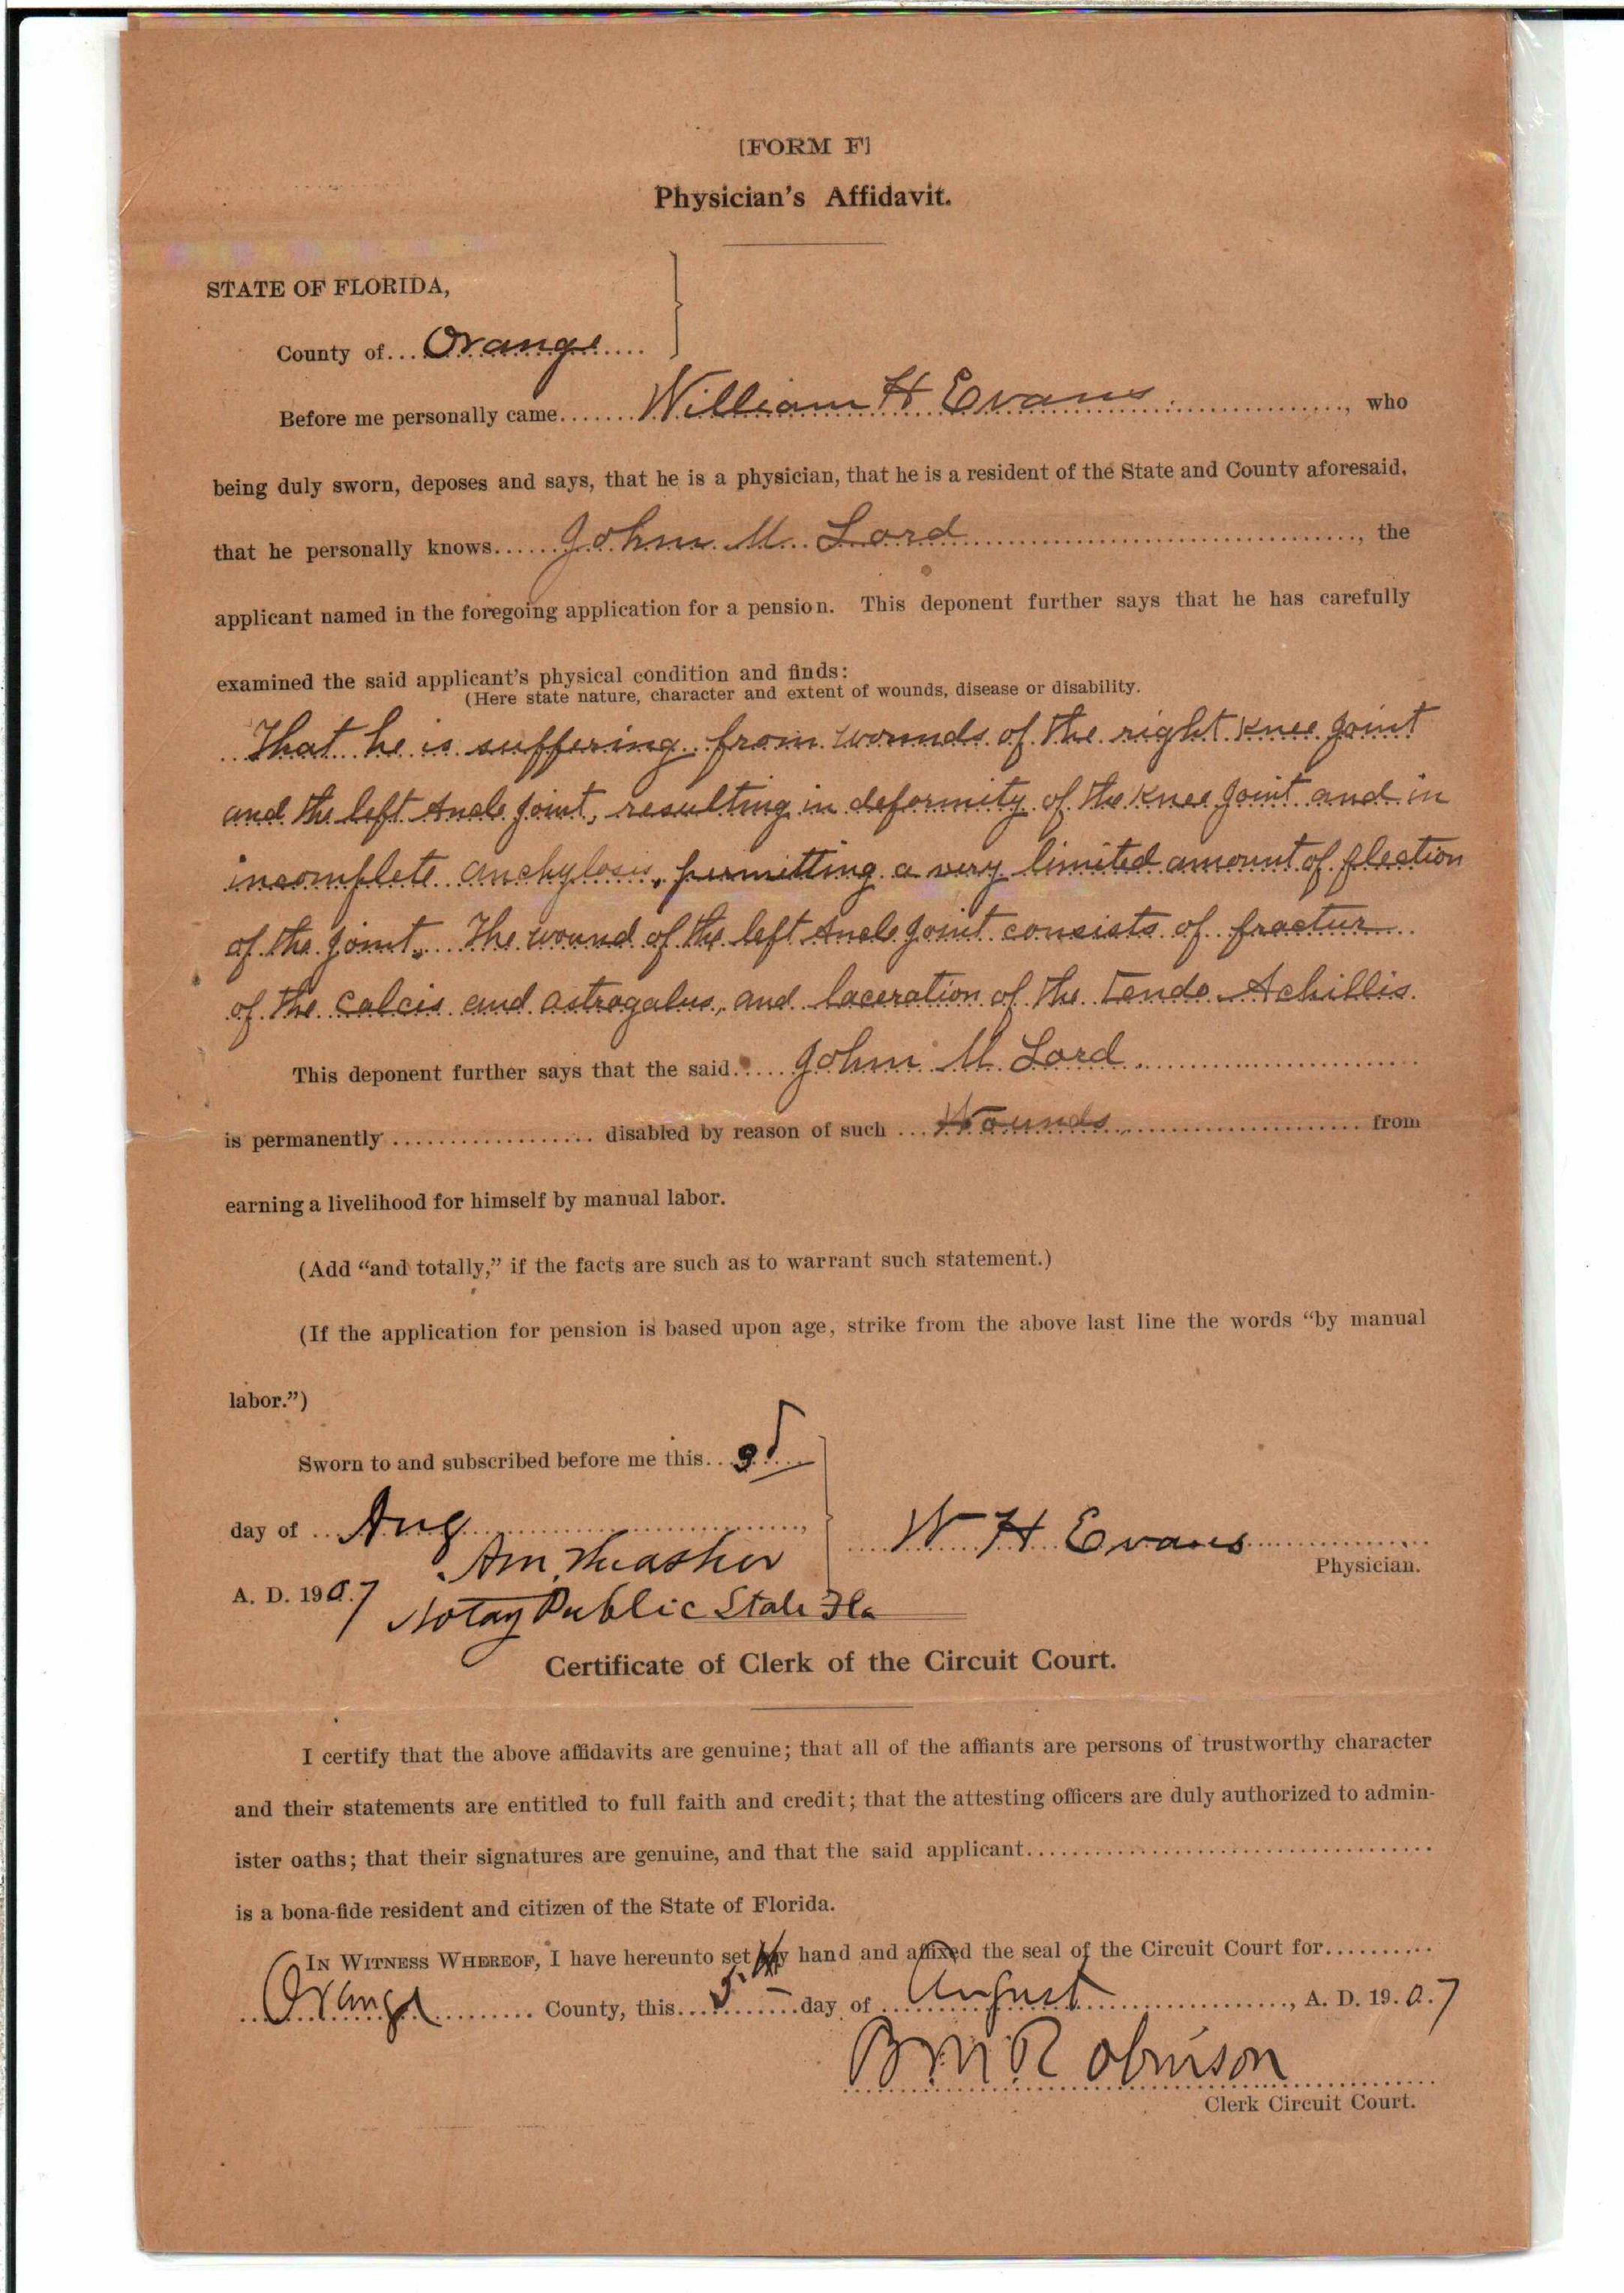 [FORM F]
Physician's Affidavit.
STATE OF FLORIDA,
County of... Orange ....
Before me personally came....... William H Evans ..................., who
being duly sworn, deposes and says, that he is a physician, that he is a resident of the State and County aforesaid,
that he personally knows...... John M. Lord ..................., the
applicant named in the foregoing application for a pension. This deponent further says that he has carefully
examined the said applicant's physical condition and finds:
(Here state nature, character and extent of wounds, disease or disability.
That he is suffering from wounds of the right knee joint
and the left Ancle joint, resulting in deformity of the knee joint and in
incomplete anchylosis, permitting a very limited amount of flection
of the joint. The wound of the left Ancle joint consists of fractur
of the calcis and astragalus, and laceration of the Tendo Achillis.
This deponent further says that the said..... John M. Lord ...................
is permanently ................... disabled by reason of such ... Wounds ................... from
earning a livelihood for himself by manual labor.
(Add “and totally,” if the facts are such as to warrant such statement.)
(If the application for pension is based upon age, strike from the above last line the words “by manual
labor.”)
Sworn to and subscribed before me this... 3d
day of ... Aug ...................,
W H Evans
Physician.
A. D. 1907
Notay Public State Fla
Certificate of Clerk of the Circuit Court.
I certify that the above affidavits are genuine; that all of the affiants are persons of trustworthy character
and their statements are entitled to full faith and credit; that the attesting officers are duly authorized to admin-
ister oaths; that their signatures are genuine, and that the said applicant...................
is a bona-fide resident and citizen of the State of Florida.
IN WITNESS WHEREOF, I have hereunto set my hand and affixed the seal of the Circuit Court for..........
Orange .......... County, this... 5 ...day of ... August ..................., A. D. 19.0.7
B M Robinson
Clerk Circuit Court.